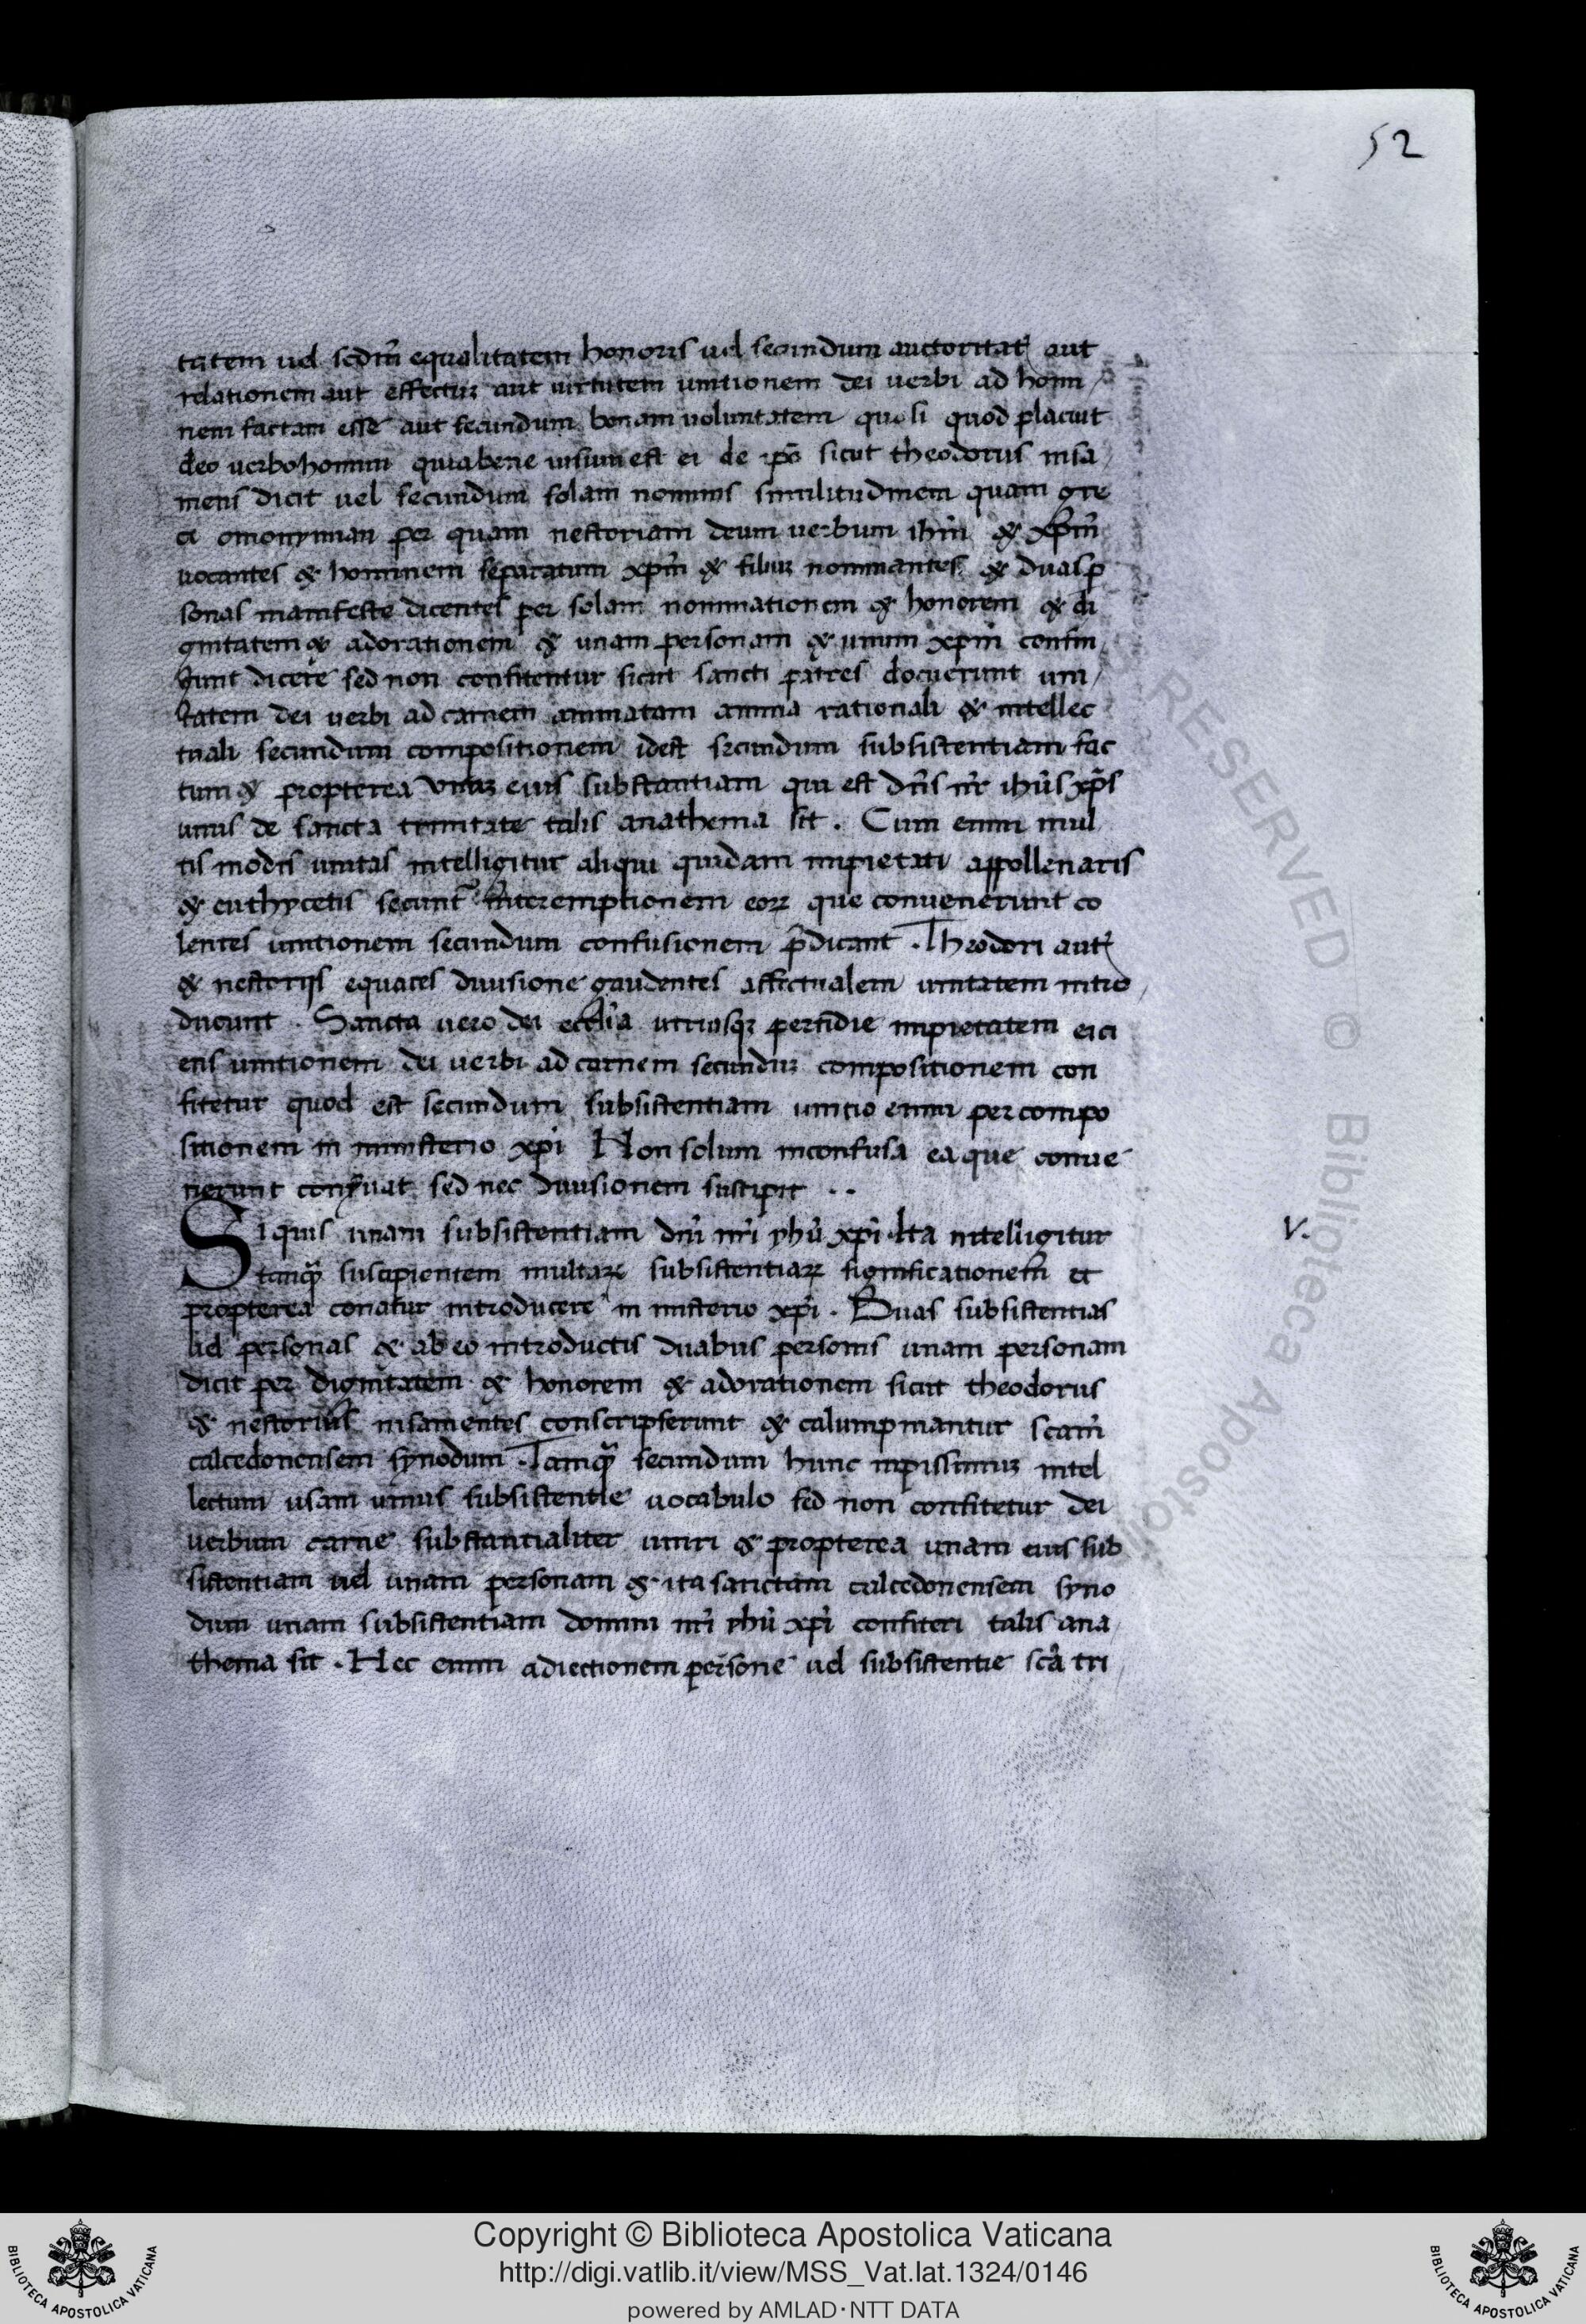 52
tutem uel scdm̄ equalitatem honoris uel secundum auctoritatē aut
relationem aut effectuʒ aut uirtutem unitionem dei uerbi ad homi
nem factam esse aut secundum bonam uoluntatem quasi quod placuit
deo uerbo homini quia bene uisum est ei de ip̄o sicut theodorus insa
mens dicit uel secundum solam nominis similitudinem quam gre
ci omonymian per quam nestoriani deum uerbum ihm̄ & xp̄m
uocantes & hominem separatum xp̄m & filiuʒ nominantes & duas ꝑ
sonas manifeste dicentes per solam nominationem & honorem & di
gnitatem & adorationem & unam personam & unum xp̄m confin
gunt dicere sed non confitentur sicut sancti patres docuerunt uni
tatem dei uerbi ad carnem animatam anima rationali & intellec
tuali secundum compositionem idest secundum subsistentiam fac
tum & propterea unaʒ eius substantiam qui est dn̄s nr̄ ihūs xp̄s
unus de sancta trinitate talis anathema sit . Cum enim mul
tis modis unitas intelligitur aliqui quidam impietati appollenaris
& euthycetis secunt᷑ interemptionem eoꝝ que conuenerunt co
lentes unitionem secundum confusionem p̄dicant . Theodori autē
& nestorijs equaces diuisione gaudentes affectualem unitatem intro
ducunt . Sancta uero dei eccl̄ia utriusqʒ perfidie impietatem eici
ens unitionem dei uerbi ad carnem secunduʒ compositionem con
fitetur quod est secundum subsistentiam unitio enim per compo
sitionem in ministerio xp̄i Non solum inconfusa ea que conue
nerunt conẜuat sed nec diuisionem suscipit . .
Si quis unam subsistentiam dn̄i nr̄i yhū xp̄i Ita intelligitur
V.
tanqᷓ suscipientem multaꝝ subsistentiaꝝ significationem et
propterea conatur introducere in misterio xp̄i . Duas subsistentias
uel personas & ab eo introductis duabus personis unam personam
dicit per dignitatem & honorem & adorationem sicut theodorus
& nestorius insamentes conscripserunt & calumpniantur scam̄
calcedonensem synodum . Tamqᷓ secundum hunc inpissimuʒ intel
lectum usam unius subsistentie uocabulo sed non confitetur dei
uerbum carne substantialiter uniri & propterea unam eius sub
sistentiam uel unam personam & ita sanctam calcedonensem syno
dum unam subsistentiam domini nr̄i yhū xp̄i confiteri talis ana
thema sit . Nec enim adiectionem persone uel subsistentie scā tri
RESERVED © Biblioteca Apostoli
BIBLIOTECA APOSTOLICA VATICANA
Copyright © Biblioteca Apostolica Vaticana
http://digi.vatlib.it/view/MSS_Vat.lat.1324/0146
powered by AMLAD·NTT DATA
BIBLIOTECA APOSTOLICA VATICANA